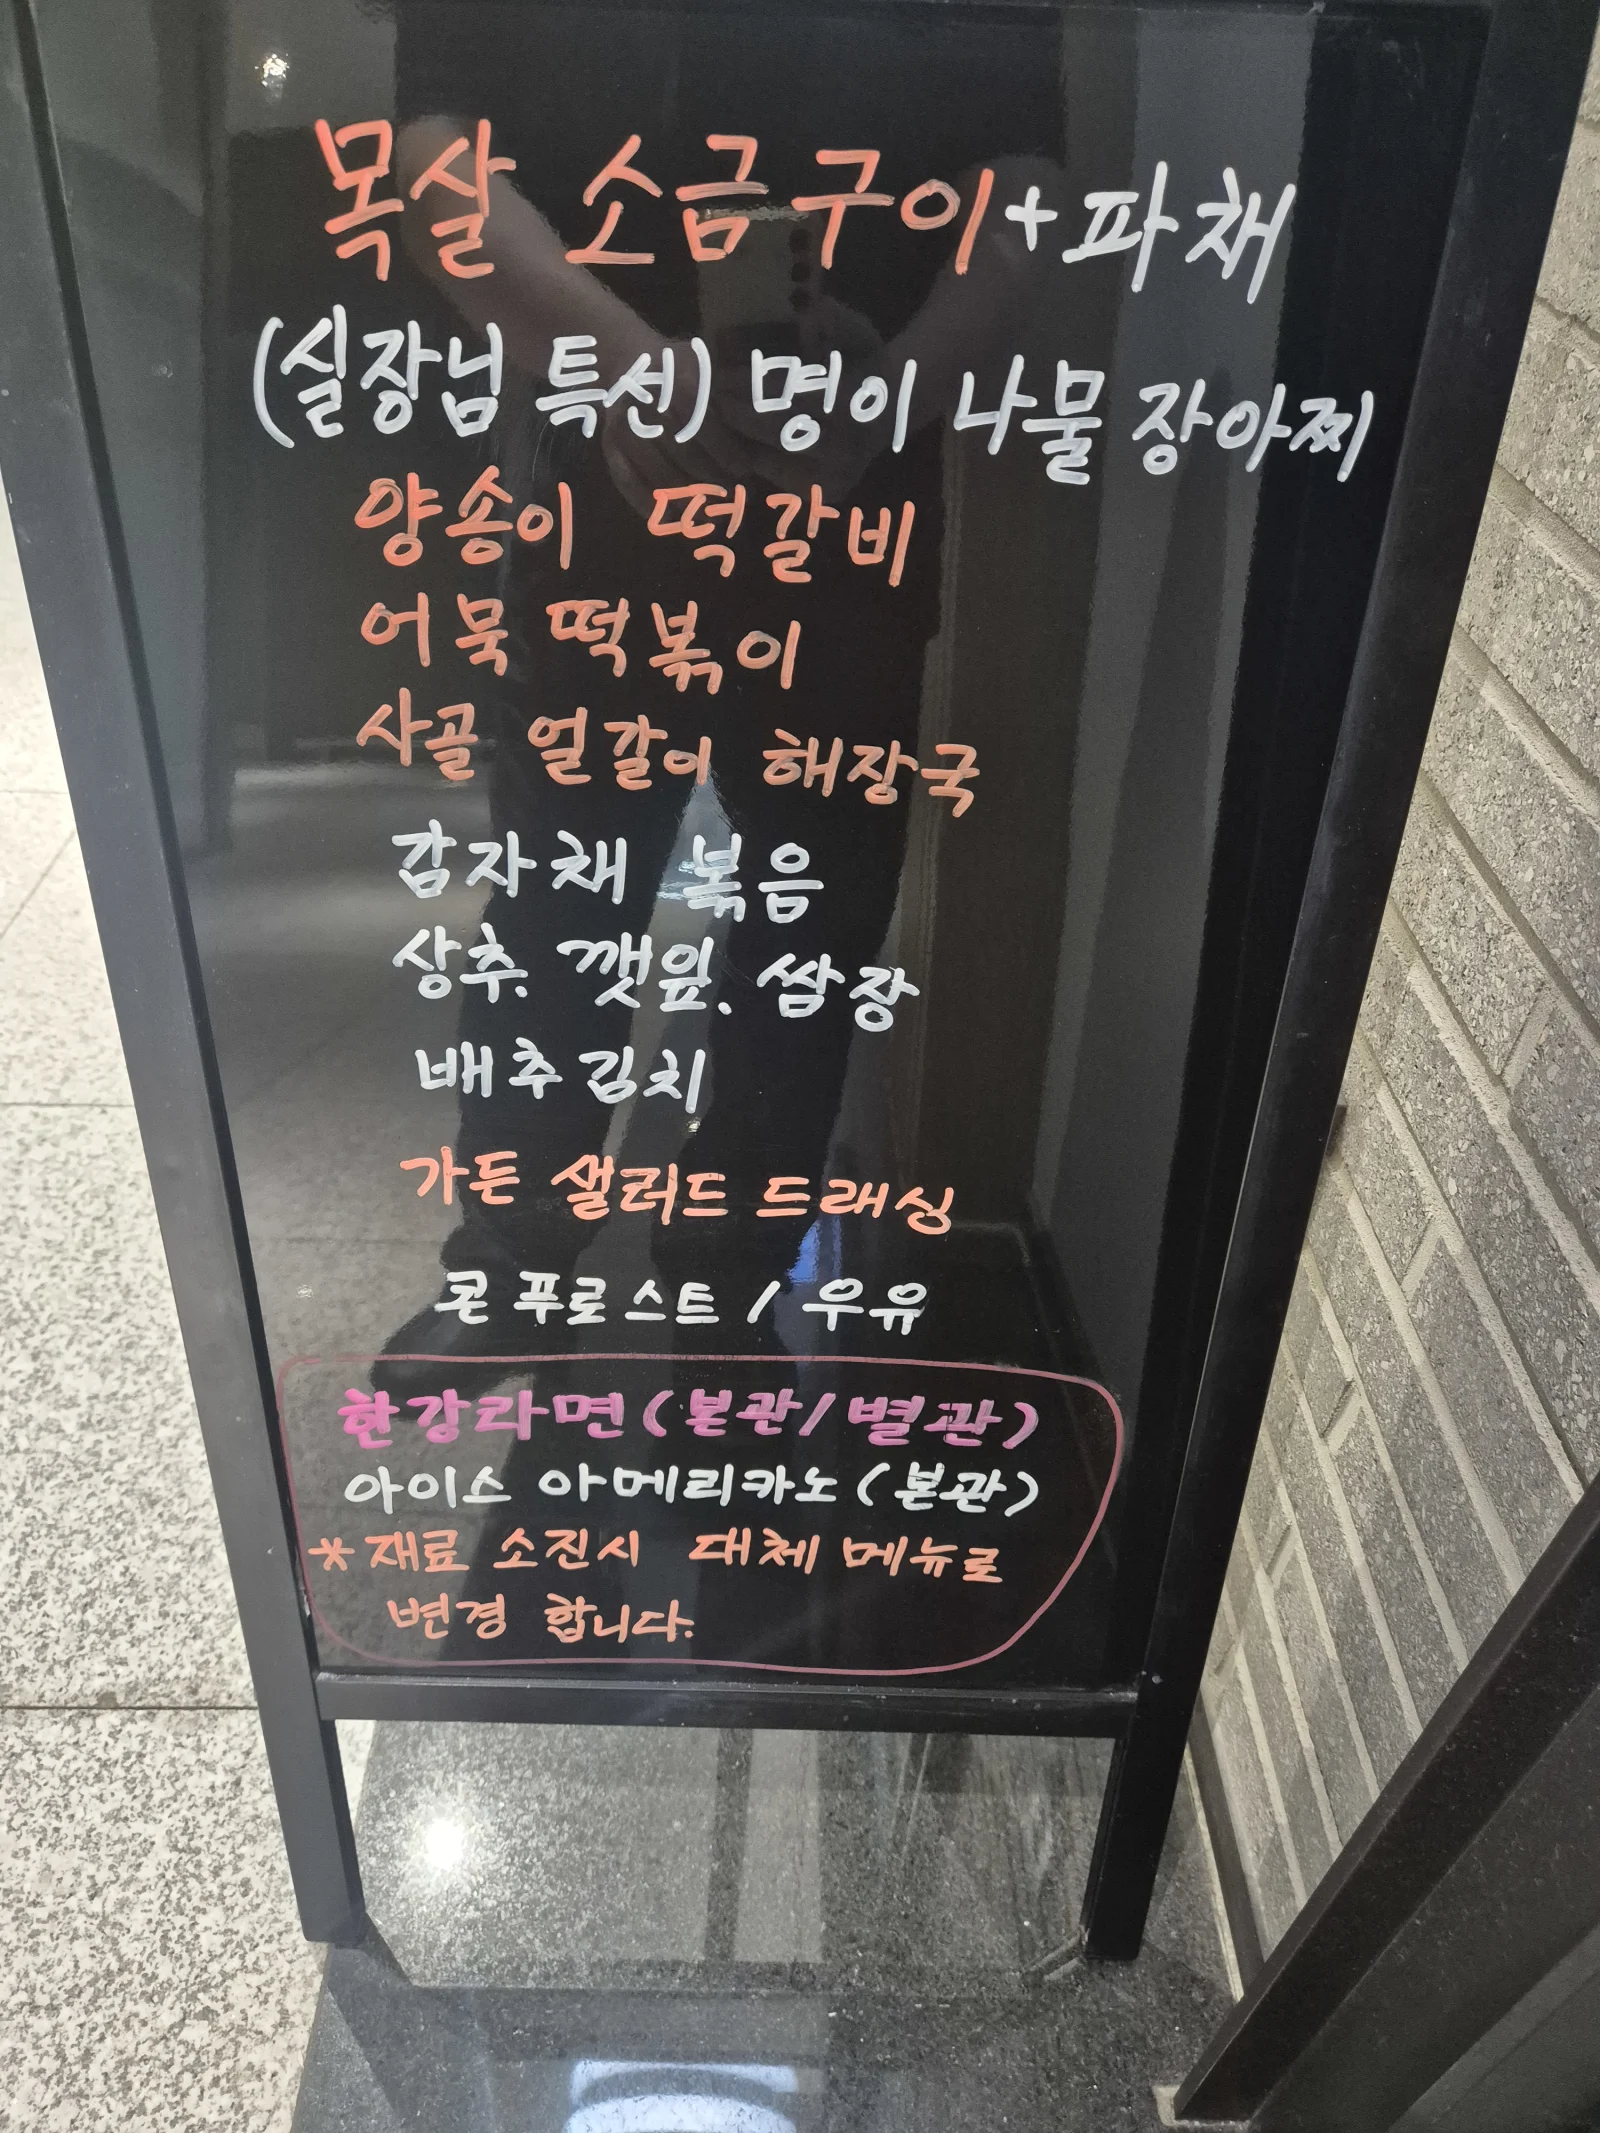 목살 소금구이+파채
(실장님 특선) 명이 나물 장아찌
양송이 떡갈비
어묵 떡볶이
사골 얼갈이 해장국
감자채 볶음
상추. 깻잎. 쌈장
배추김치
가든 샐러드 드래싱
콘 푸로스트 / 우유
한강라면 (본관/별관)
아이스 아메리카노 (본관)
*재료 소진시 대체 메뉴로
변경 합니다.